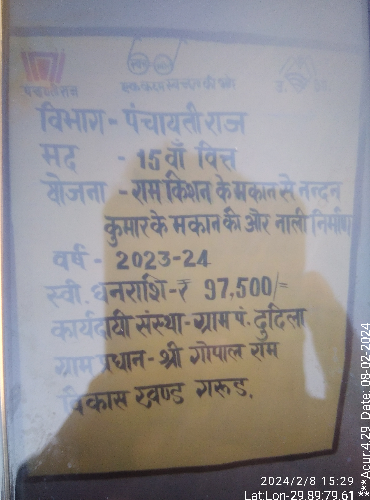 पंचायतीराज
एक कदम स्वच्छता की ओर
विभाग - पंचायती राज
मद - 15वाँ वित्त
योजना - राम किशन के मकान से नन्दन
कुमार के मकान की ओर नाली निर्माण
वर्ष - 2023-24
स्वी. धनराशि - ₹ 97,500/=
कार्यदायी संस्था - ग्राम पं. दुदिला
ग्राम प्रधान - श्री गोपाल राम
विकास खण्ड गरुड.
2024/2/8 15:29
Lat:Lon-29.89:79.61
***Acur:4.29 Date: 08-02-2024